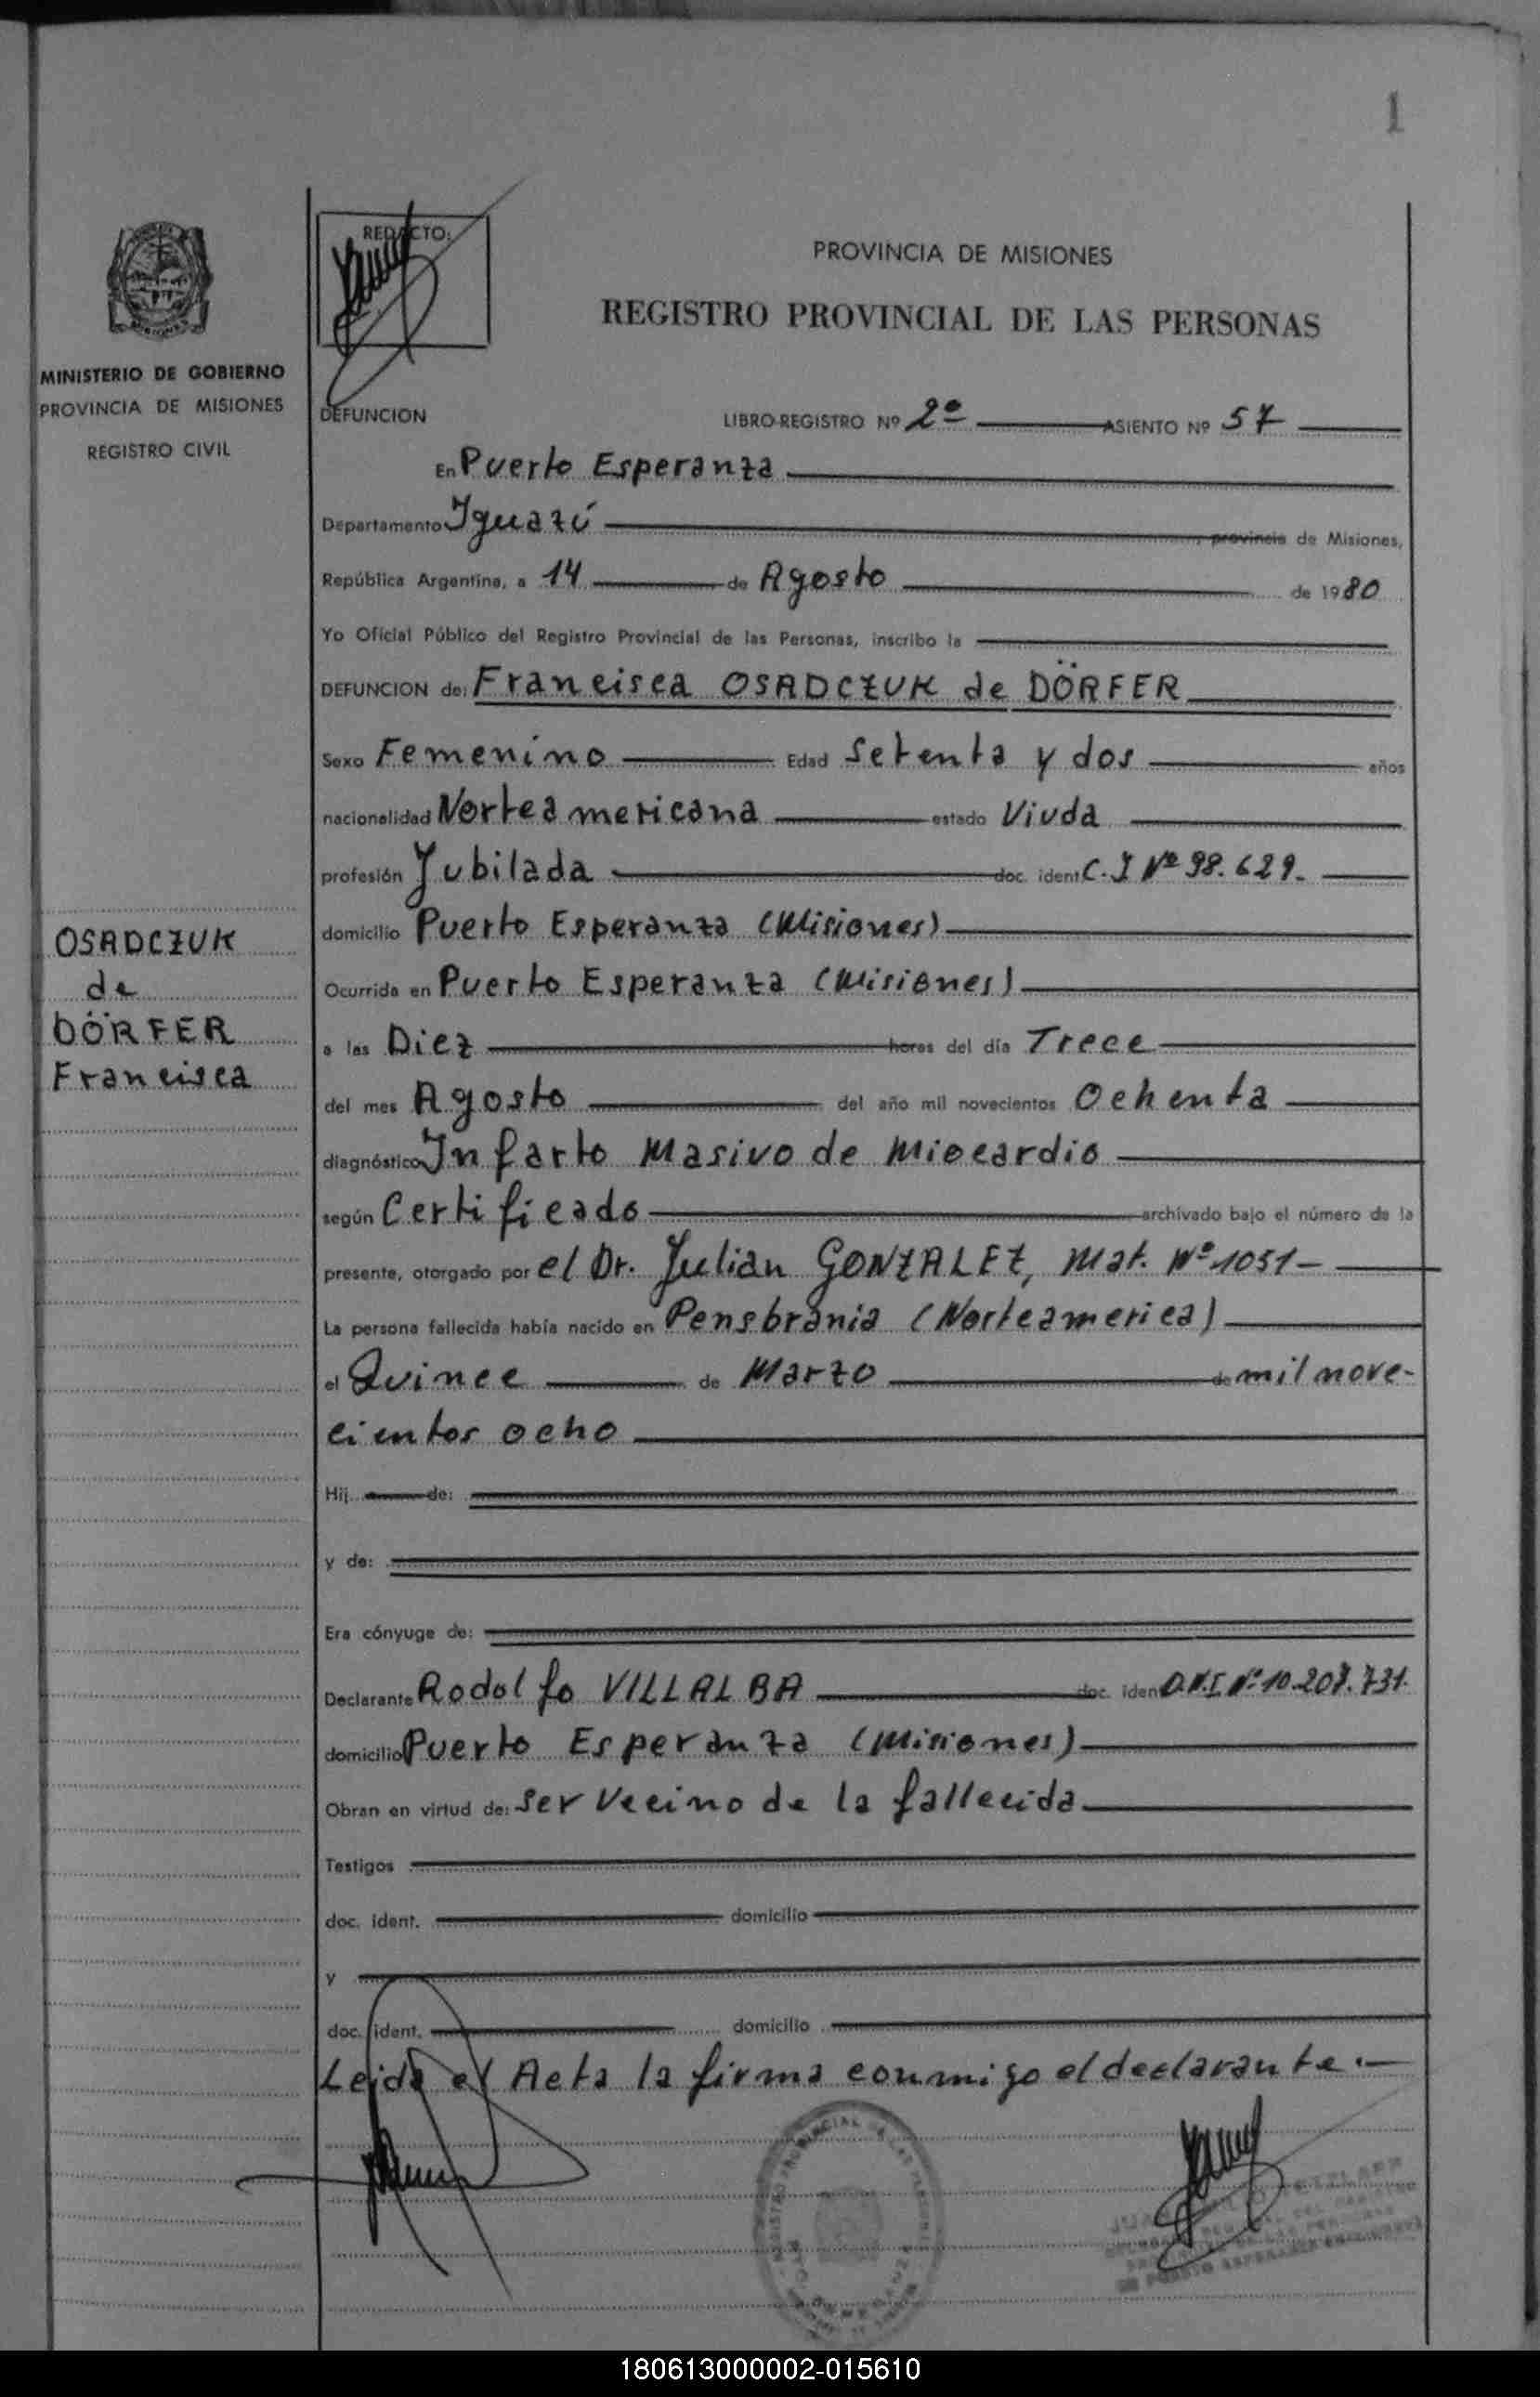 1
REDACTO:
PROVINCIA DE MISIONES
REGISTRO PROVINCIAL DE LAS PERSONAS
MINISTERIO DE GOBIERNO
PROVINCIA DE MISIONES
REGISTRO CIVIL
DEFUNCION LIBRO-REGISTRO Nº 2º ASIENTO Nº 57
En Puerto Esperanza
Departamento Iguazú, provincia de Misiones,
República Argentina, a 14 de Agosto de 1980
Yo Oficial Público del Registro Provincial de las Personas, inscribo la
DEFUNCION de: Francisca OSADCZUK de DÖRFER
Sexo Femenino Edad Setenta y dos años
nacionalidad Norteamericana estado Viuda
profesión Jubilada doc. ident C.I Nº 98.629.
domicilio Puerto Esperanza (Misiones)
OSADCZUK
de
DÖRFER
Francisca
Ocurrida en Puerto Esperanza (Misiones)
a las Diez horas del día Trece
del mes Agosto del año mil novecientos Ochenta
diagnóstico Infarto Masivo de Miocardio
según Certificado archivado bajo el número de la
presente, otorgado por el Dr. Julian GONZALEZ, Mat. Nº 1051-
La persona fallecida había nacido en Pensbrania (Norteamerica)
el Quince de Marzo de mil nove-
cientos ocho
Hij de:
y de:
Era cónyuge de:
Declarante Rodolfo VILLALBA doc. iden D.N.I Nº 10.207.731.
domicilio Puerto Esperanza (Misiones)
Obran en virtud de: Ser Vecino de la fallecida
Testigos
doc. ident. domicilio
y
doc. ident. domicilio
Leida el Acta la firma conmigo el declarante.-
180613000002-015610